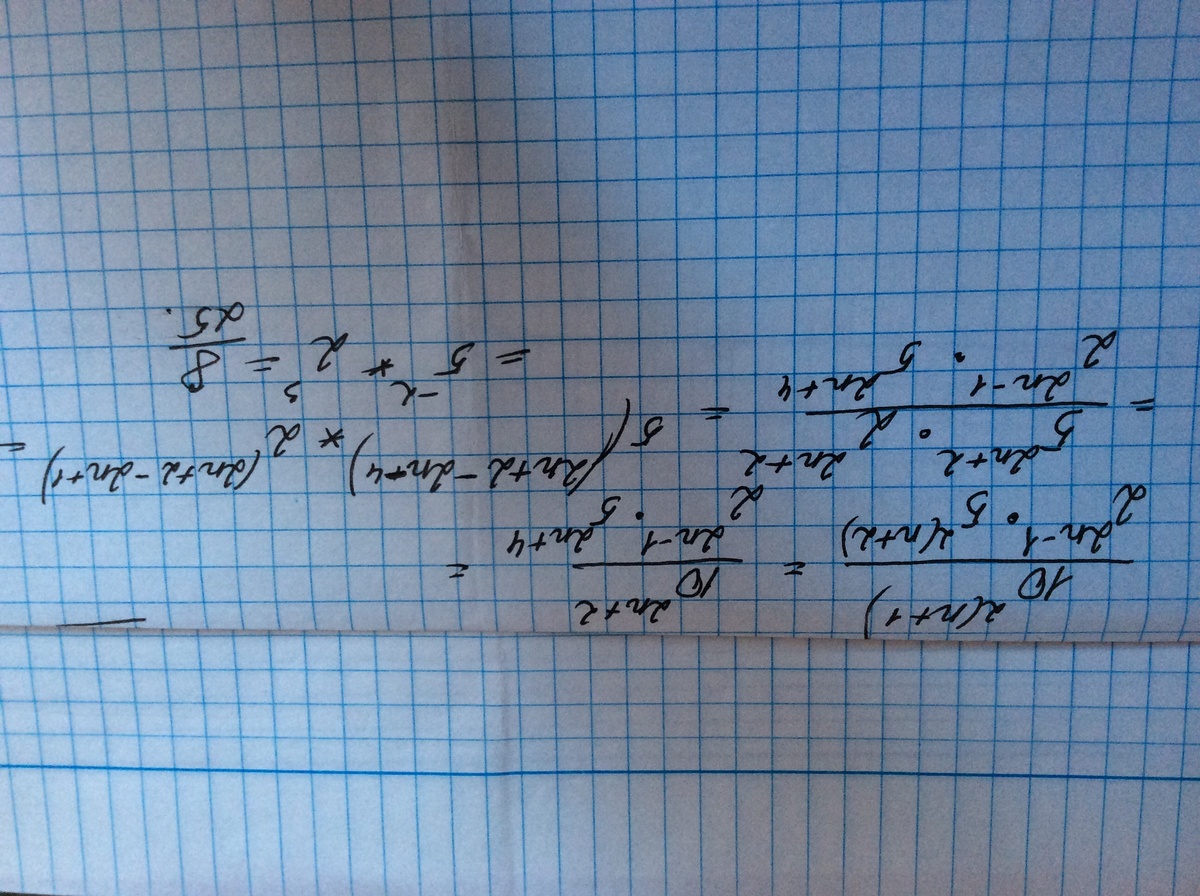 10^{2(n+1)} / (2^{2n-1} · 5^{2(n+2)}) = 10^{2n+2} / (2^{2n-1} · 5^{2n+4}) =
= (5^{2n+2} · 2^{2n+2}) / (2^{2n-1} · 5^{2n+4}) = 5^{(2n+2-2n+4)} * 2^{(2n+2-2n+1)} =
= 5^{-2} * 2^{3} = 8/25.